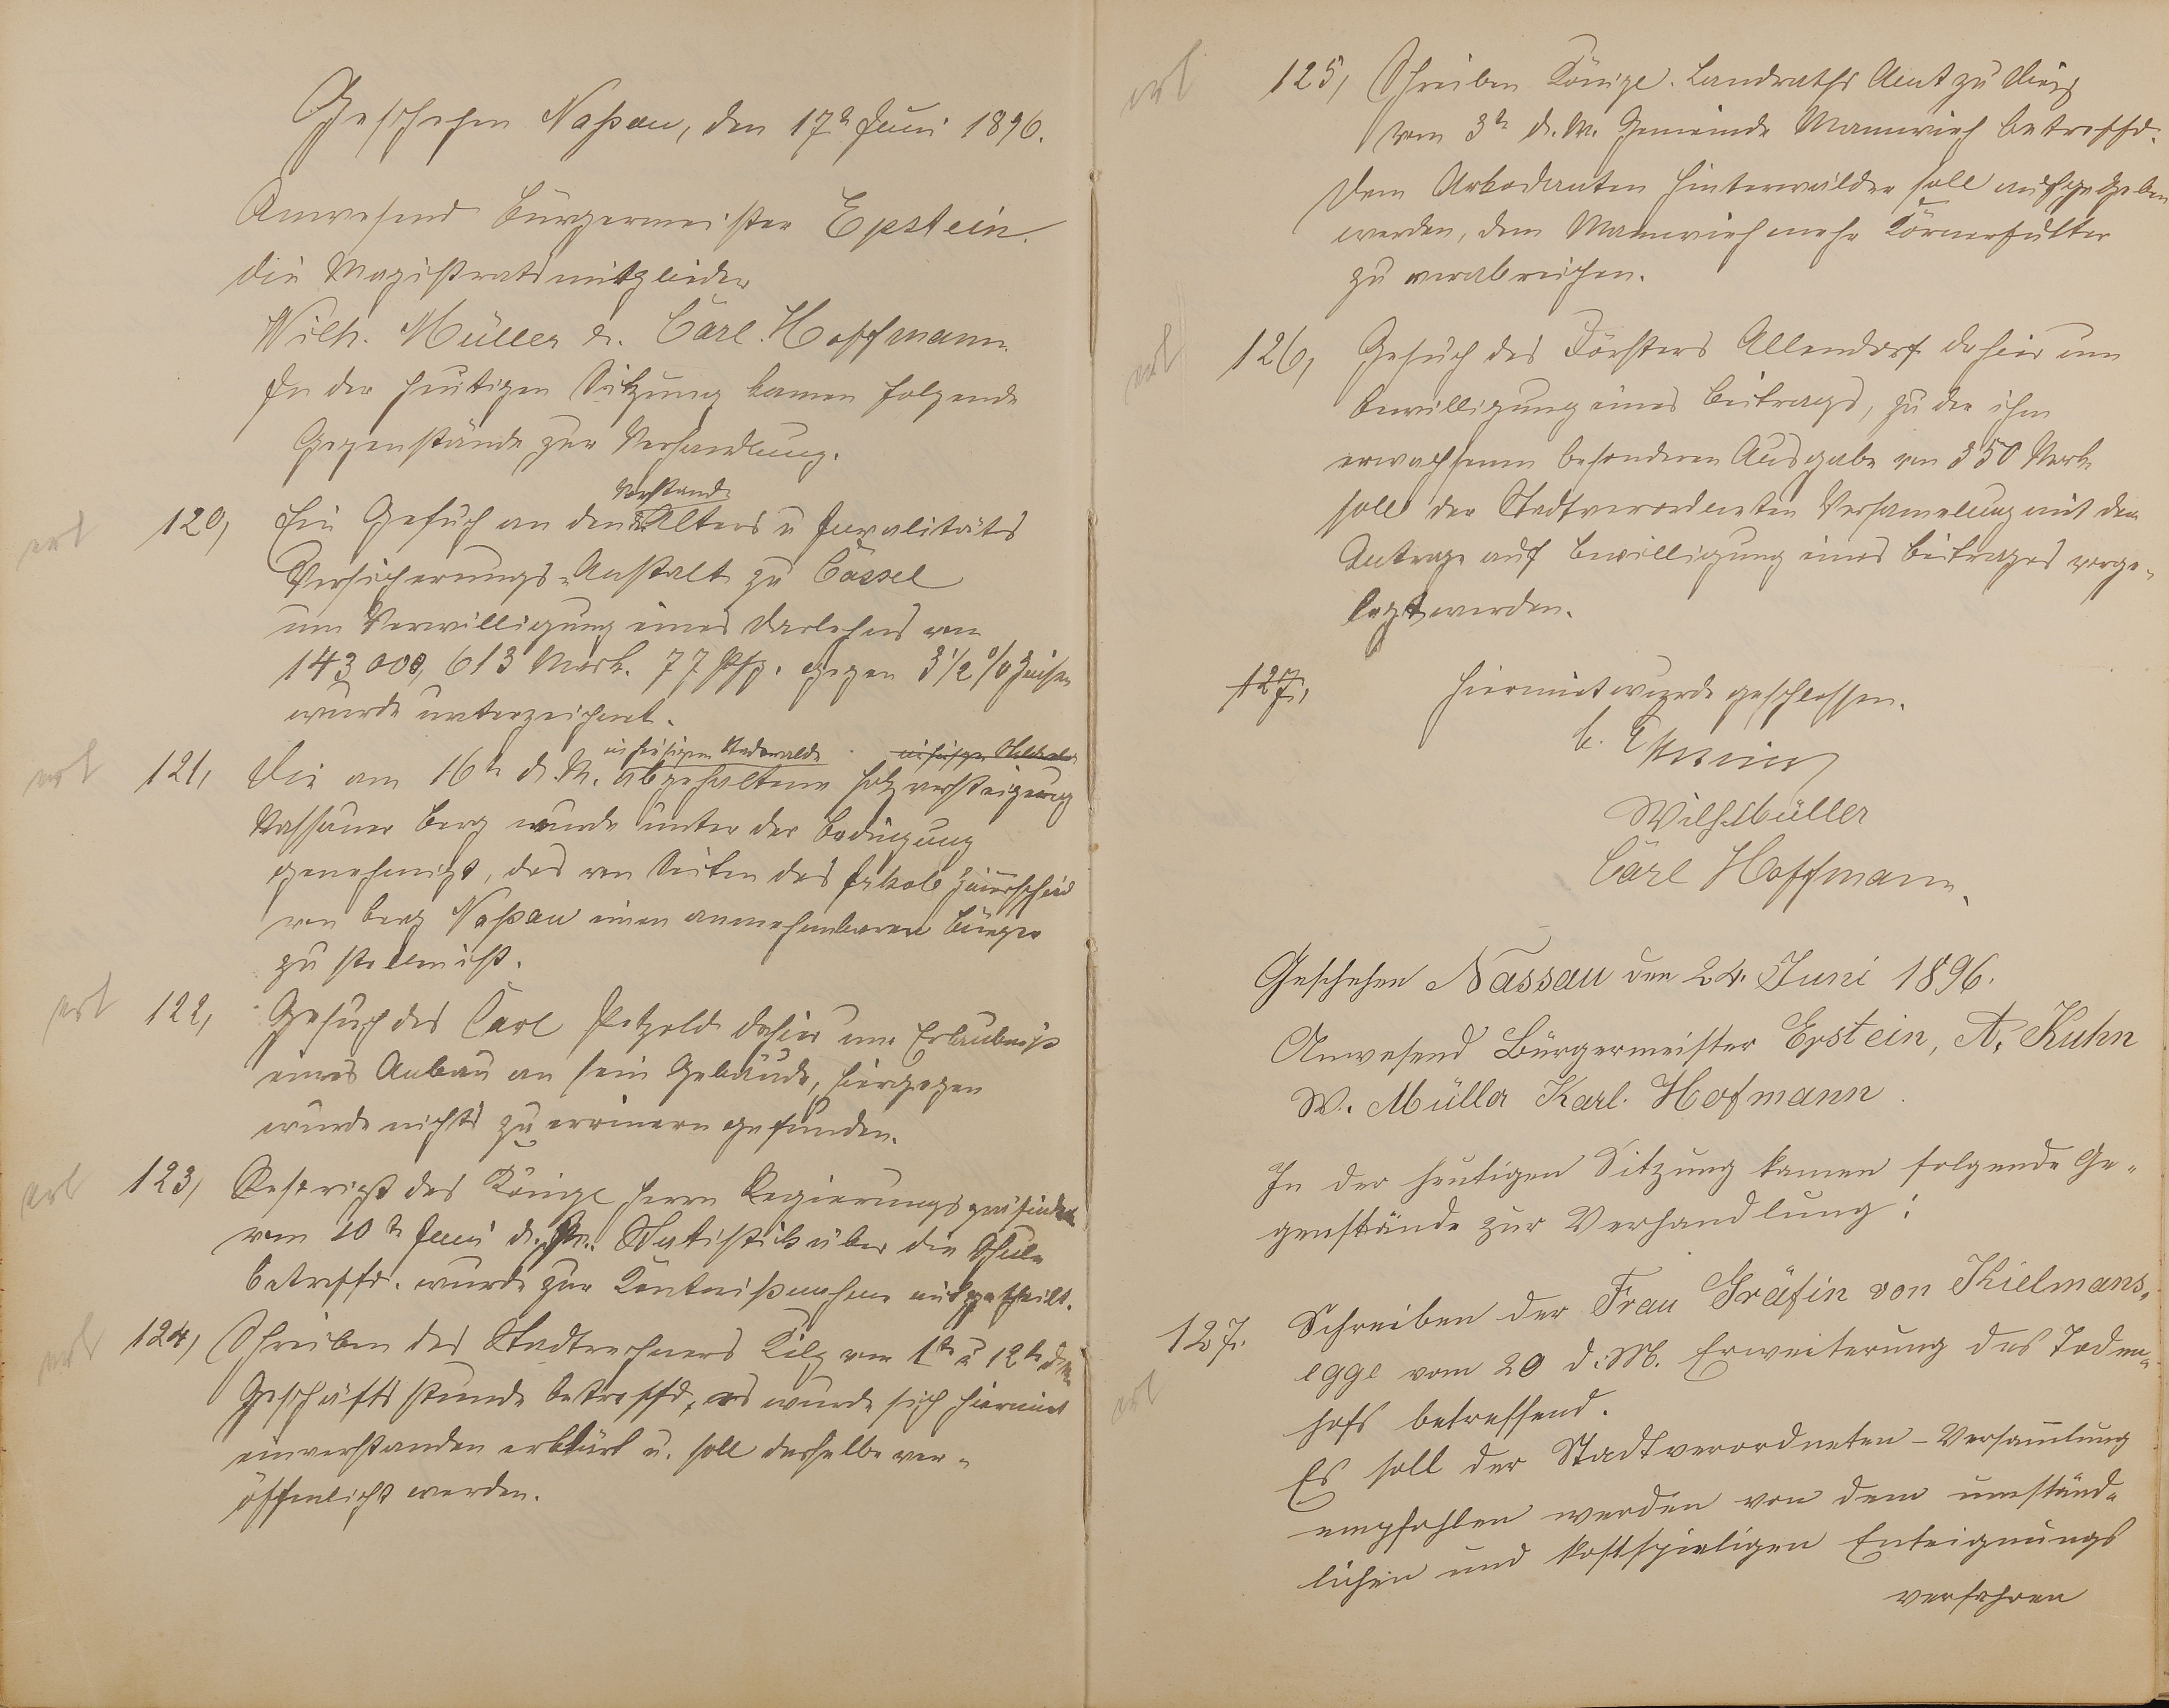 Geschehen Naßau, den 17t Juni 1896.
Anwesend Bürgermeister Epstein.
die Magistratsmitglieder
Wilh. Müller u. Carl Hoffmann.
In der heutigen Sitzung kamen folgende
Gegenstände zur Verhandlung.
Vorstand
ert 120, Ein Gesuch an den der Alters u Invalitäts
Versicherungs-Anstalt zu Cassel
um Verwilligung eines Darlehns von
143 000, 613 Mark. 77 Pfg. gegen 3 1/2 % Zinsen
wurde unterzeichnet.
im hiesigen Stadtwalde
ert 121, Die am 16t d. M. abgehaltene Holzversteigerung
Nassauer Berg wurde unter der Bedingung
genehmigt, das von Seiten des Jakob
von Berg Naßau einen annehmbaren Bürgen
zu stellen ist.
ert 122, Gesuch des Carl Petzold dahier um Erlaubniß
eines Anbau an sein Gebäude, hiergegen
wurde nichts zu errinern gefunden.
ert 123, Reskript des Königl Herrn Regierungspräsidenten
vom 10t Juni d. Js. Statistik über die Schule
betreffd. wurde zur Kentnißnahme mitgetheilt.
ert 124, Schreiben des Stadtrechners Kilp vom 1t u 12t d. M.
Geschäftsstunde betreffd, es wurde sich hiermit
einverstanden erklärt u. soll dasselbe ver-
öffentlicht werden.
ert 125, Schreiben Königl. Landraths Amt zu Diez
vom 3t d. M. Gemeinde betreffd.
Dem Akordanten Hinterwälder soll aufgegeben
werden, dem mehr Körnerfutter
zu verabreichen.
ert 126, Gesuch des Försters Allendorf dahier um
Bewilligung eines Beitrags, zu der ihm
erwachsenen besonderen Ausgabe von 350 Mark
soll der Stadtverordneten Versamelung mit dem
Antrage auf Bewilligung eines Beitrages vorge-
legt werden.
127, Hiermit wurde geschlossen.
Epstein
Wilh. Müller
Carl Hoffmann.
Geschehen Nassau den 24. Juni 1896.
Anwesend Bürgermeister Epstein, A. Kuhn
W. Müller Karl. Hofmann
In der heutigen Sitzung kamen folgende Ge-
genstände zur Verhandlung:
127. Schreiben der Frau Gräfin von Kielmans-
ert egge vom 20 d. M. Erweiterung des Toden-
hofs betreffend.
Es soll der Stadtverordneten-Versam̄lung
empfohlen werden von dem umständ-
lichen und kostspieligen Enteignungs
verfahren